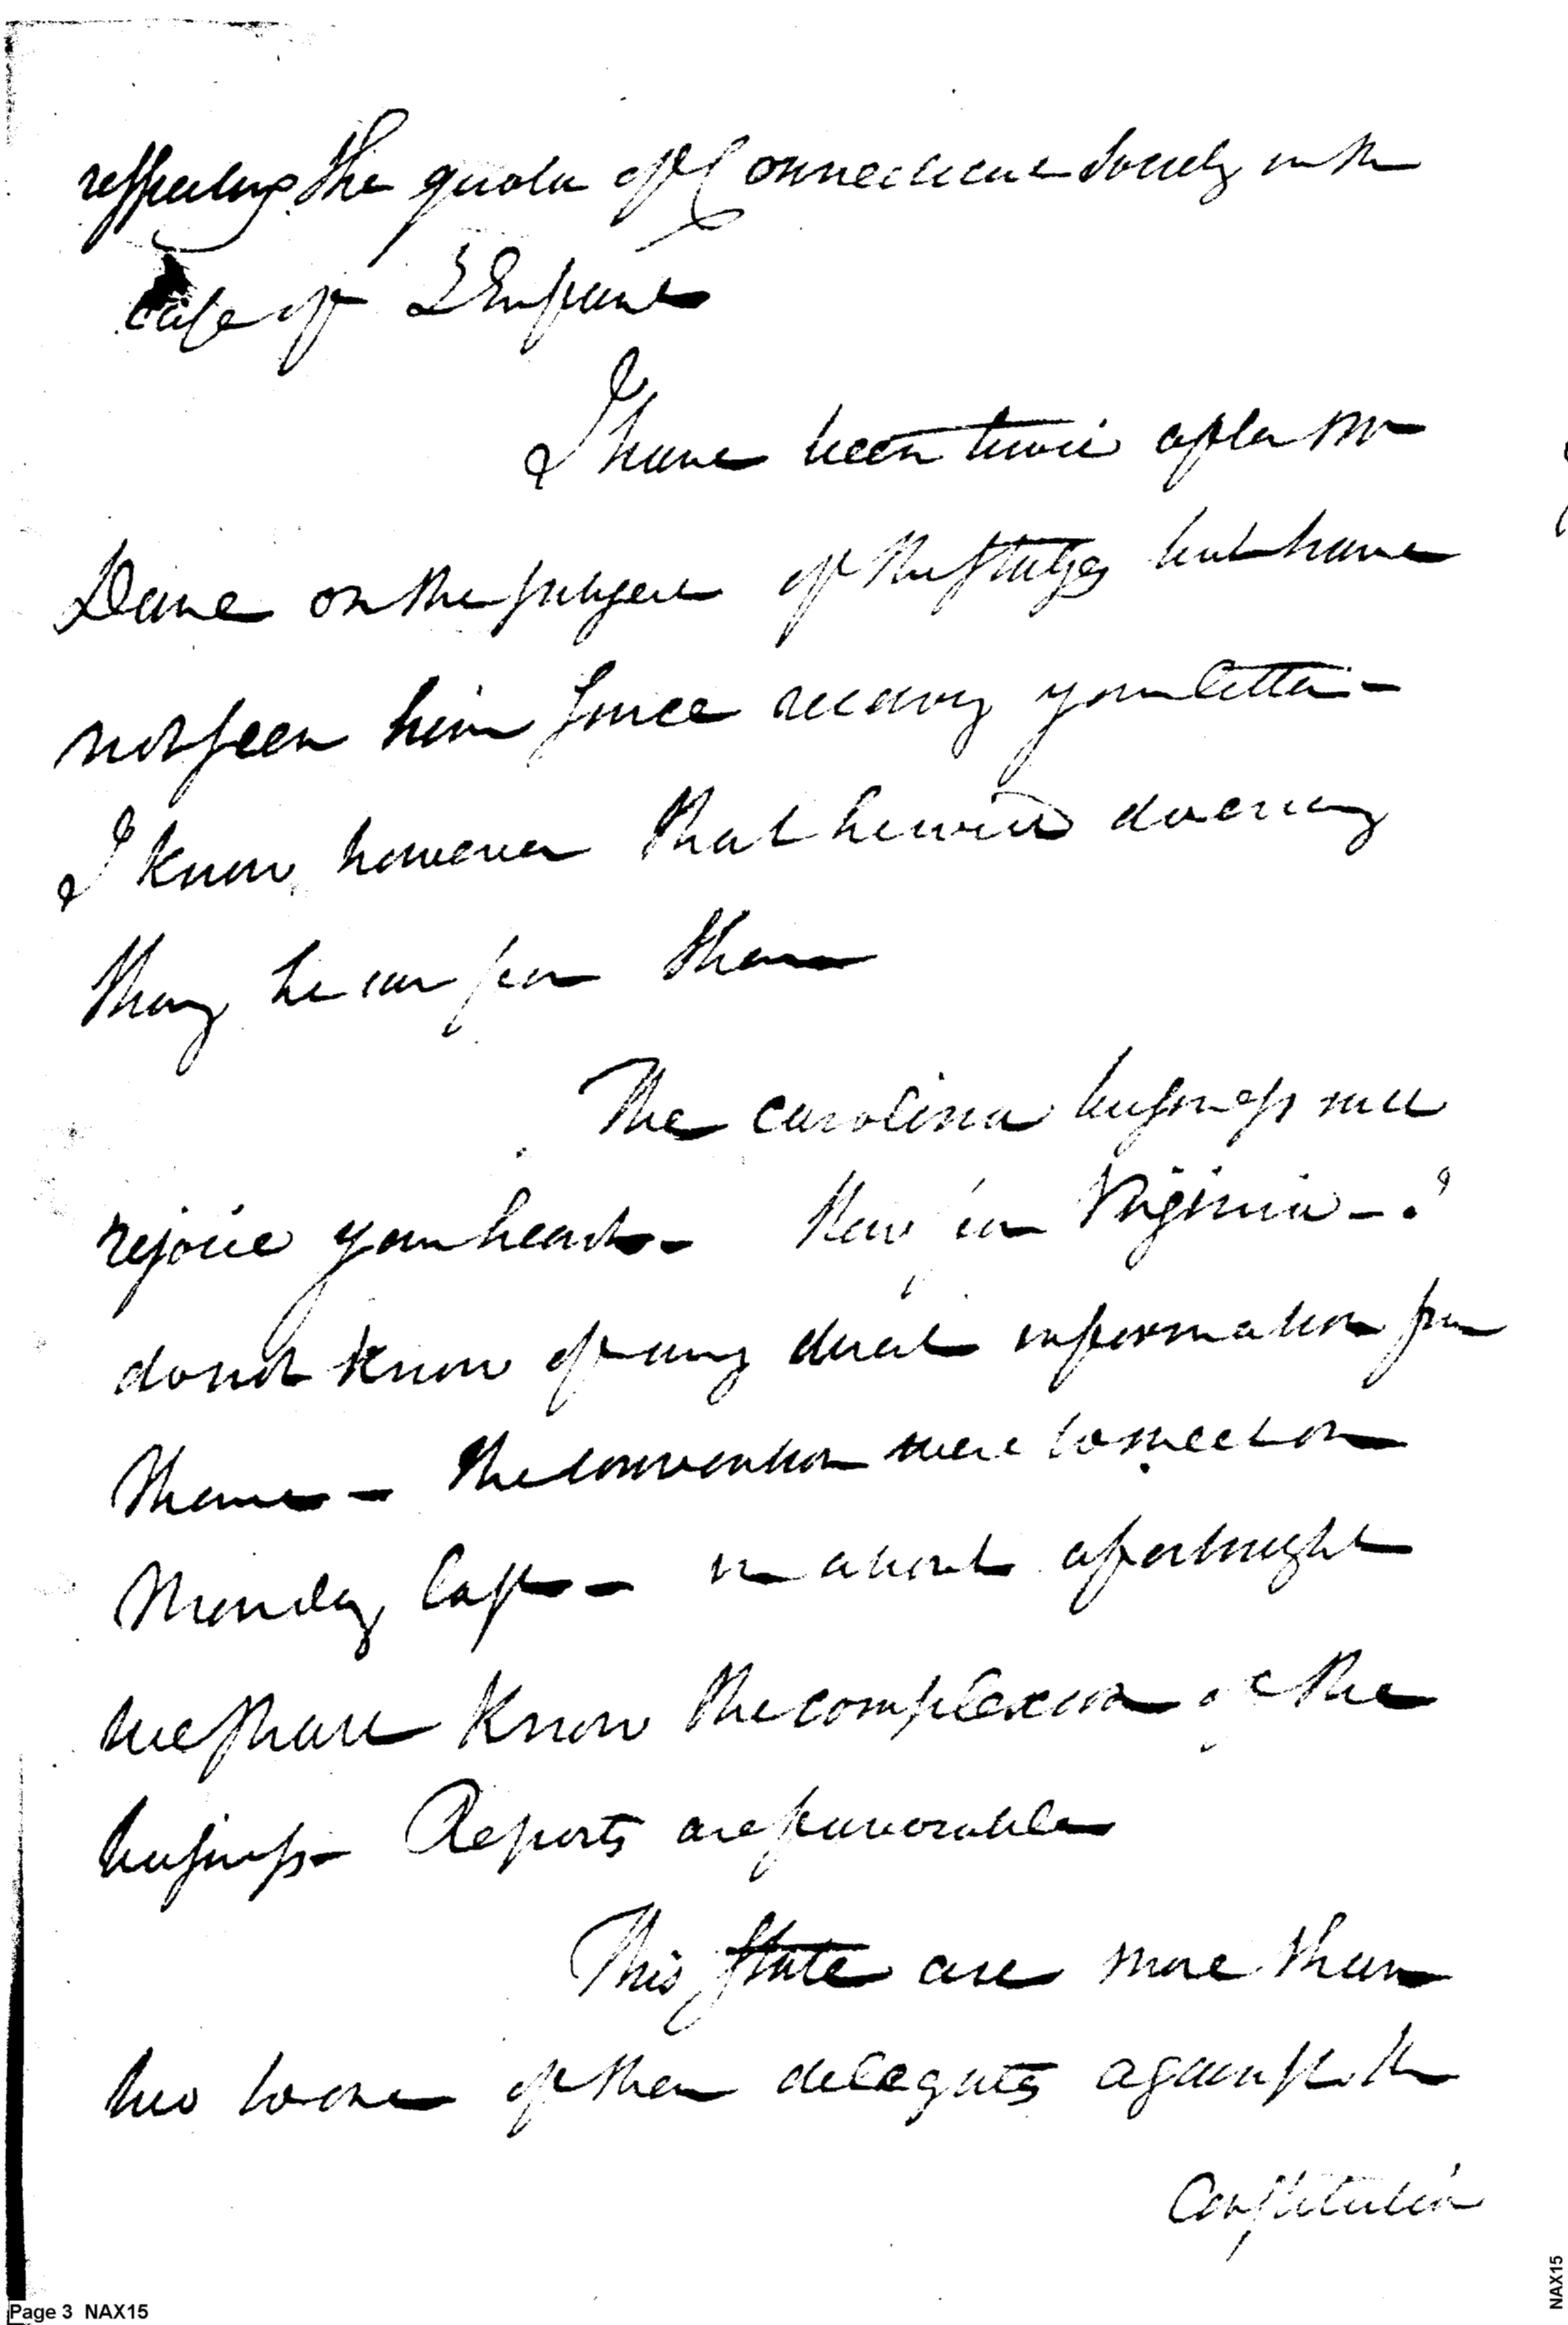 respecting the quota of Connecticut Society in the
case of L'Enfant
I have been twice after Mr
Dane on the subject of the stages but have
not seen him since receiving your letter -
I know however that he will do every
thing he can for them
The Carolina business will
rejoice your heart - How is Virginia - ?
do not know of any direct information from
thence - the convention were to meet on
Monday last - in about a fortnight
we shall know the complexion of the
business - Reports are favorable
This State are more than
two to one of their delegates against the
Constitution
Page 3 NAX15
NAX15